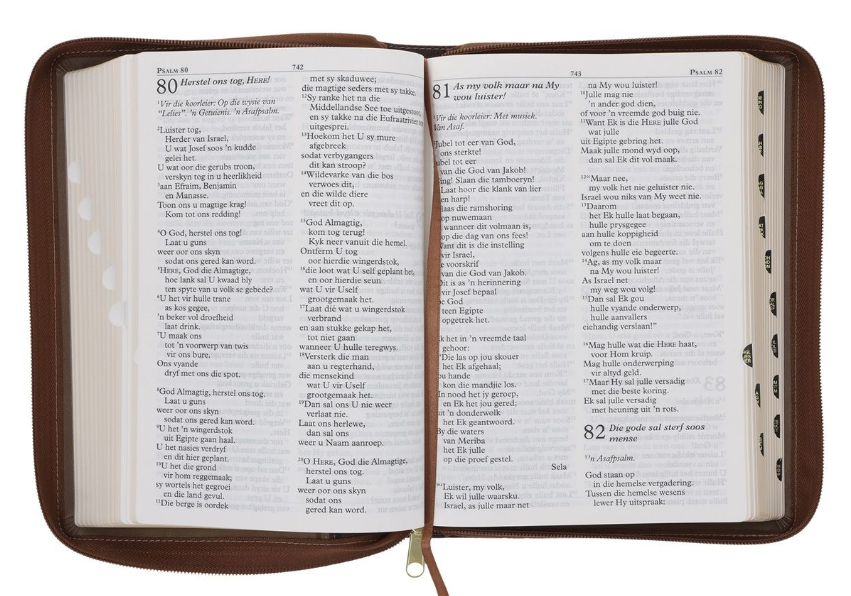 PSALM 80
742
80 Herstel ons tog, HERE!
¹Vir die koorleier: Op die wysie van
"Lelies". 'n Getuienis. 'n Asafpsalm.
²Luister tog,
Herder van Israel,
U wat Josef soos 'n kudde
gelei het.
U wat oor die gerubs troon,
verskyn tog in u heerlikheid
³aan Efraim, Benjamin
en Manasse.
Toon ons u magtige krag!
Kom tot ons redding!
⁴O God, herstel ons tog!
Laat u guns
weer oor ons skyn
sodat ons gered kan word.
⁵HERE, God die Almagtige,
hoe lank sal U kwaad bly
ten spyte van u volk se gebede?
⁶U het vir hulle trane
as kos gegee,
'n beker vol droefheid
laat drink.
⁷U maak ons
tot 'n voorwerp van twis
vir ons bure.
Ons vyande
dryf met ons die spot.
⁸God Almagtig, herstel ons tog.
Laat u guns
weer oor ons skyn
sodat ons gered kan word.
⁹U het 'n wingerdstok
uit Egipte gaan haal.
U het nasies verdryf
en dit hier geplant.
¹⁰U het die grond
vir hom reggemaak;
sy wortels het gegroei
en die land gevul.
¹¹Die berge is oordek
met sy skaduwee;
die magtige seders met sy takke.
¹²Sy ranke het na die
Middellandse See toe uitgestoot
en sy takke na die Eufraatrivier
uitgesprei.
¹³Hoekom het U sy mure
afgebreek
sodat verbygangers
dit kan stroop?
¹⁴Wildevarke van die bos
verwoes dit,
en die wilde diere
vreet dit op.
¹⁵God Almagtig,
kom tog terug!
Kyk neer vanuit die hemel.
Ontferm U tog
oor hierdie wingerdstok,
¹⁶die loot wat U self geplant het,
en oor hierdie seun
wat U vir Uself
grootgemaak het.
¹⁷Laat dié wat u wingerdstok
verbrand
en aan stukke gekap het,
tot niet gaan
wanneer U hulle teregwys.
¹⁸Versterk die man
aan u regterhand,
die mensekind
wat U vir Uself
grootgemaak het.
¹⁹Dan sal ons U nie weer
verlaat nie.
Laat ons herlewe,
dan sal ons
weer u Naam aanroep.
²⁰O HERE, God die Almagtige,
herstel ons tog.
Laat u guns
weer oor ons skyn
sodat ons
gered kan word.
743
PSALM 82
81 As my volk maar na My
wou luister!
Vir die koorleier: Met musiek.
Van Asaf.
Jubel tot eer van God,
ons sterkte!
tot eer
van die God van Jakob!
Slaan die tamboeryn!
Laat hoor die klank van lier
en harp!
die ramshoring
op nuwemaan
wanneer dit volmaan is,
op die dag van ons fees!
dit is die instelling
vir Israel,
voorskrif
van die God van Jakob.
Dit is as 'n herinnering
vir Josef bepaal
God
teen Egipte
opgetrek het.
het in 'n vreemde taal
gehoor:
"Die las op jou skouer
het Ek afgehaal;
hande
kon die mandjie los.
In nood het jy geroep,
en Ek het jou gered;
uit 'n donderwolk
het Ek geantwoord.
By die waters
van Meriba
het Ek julle
op die proef gestel.
Sela
Luister, my volk,
Ek wil julle waarsku.
Israel, as julle maar net
na My wou luister!
¹⁰Julle mag nie
'n ander god dien,
of voor 'n vreemde god buig nie.
¹¹Want Ek is die HERE julle God
wat julle
uit Egipte gebring het.
Maak julle mond wyd oop,
dan sal Ek dit vol maak.
¹²"Maar nee,
my volk het nie geluister nie.
Israel wou niks van My weet nie.
¹³Daarom
het Ek hulle laat begaan,
hulle prysgegee
aan hulle koppigheid
om te doen
volgens hulle eie begeerte.
¹⁴Ag, as my volk maar
na My wou luister!
As Israel net
my weg wou volg!
¹⁵Dan sal Ek gou
hulle vyande onderwerp,
hulle aanvallers
eiehandig verslaan!"
¹⁶Mag hulle wat die HERE haat,
voor Hom kruip.
Mag hulle onderwerping
vir altyd geld.
¹⁷Maar Hy sal julle versadig
met die beste koring.
Ek sal julle versadig
met heuning uit 'n rots.
82 Die gode sal sterf soos
mense
¹'n Asafpsalm.
God staan op
in die hemelse vergadering.
Tussen die hemelse wesens
lewer Hy uitspraak: